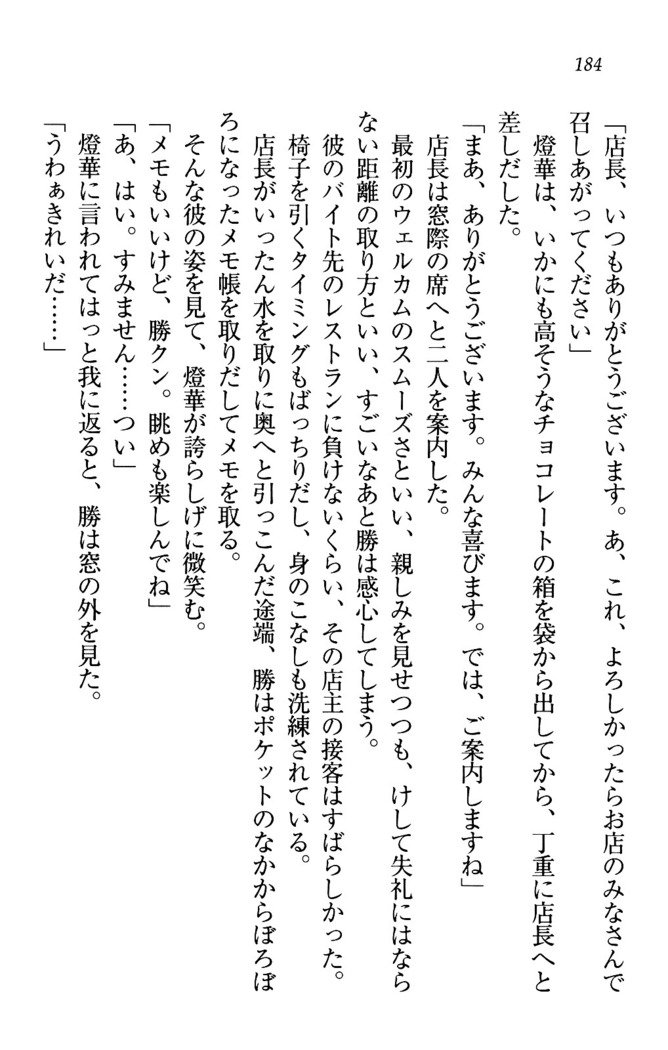 184
「店長、いつもありがとうございます。あ、これ、よろしかったらお店のみなさんで
召しあがってください」
燈華は、いかにも高そうなチョコレートの箱を袋から出してから、丁重に店長へと
差しだした。
「まあ、ありがとうございます。みんな喜びます。では、ご案内しますね」
店長は窓際の席へと二人を案内した。
最初のウェルカムのスムーズさといい、親しみを見せつつも、けして失礼にはなら
ない距離の取り方といい、すごいなあと勝は感心してしまう。
彼のバイト先のレストランに負けないくらい、その店主の接客はすばらしかった。
椅子を引くタイミングもばっちりだし、身のこなしも洗練されている。
店長がいったん水を取りに奥へと引っこんだ途端、勝はポケットのなかからぼろぼ
ろになったメモ帳を取りだしてメモを取る。
そんな彼の姿を見て、燈華が誇らしげに微笑む。
「メモもいいけど、勝クン。眺めも楽しんでね」
「あ、はい。すみません……つい」
燈華に言われてはっと我に返ると、勝は窓の外を見た。
「うわぁきれいだ……」